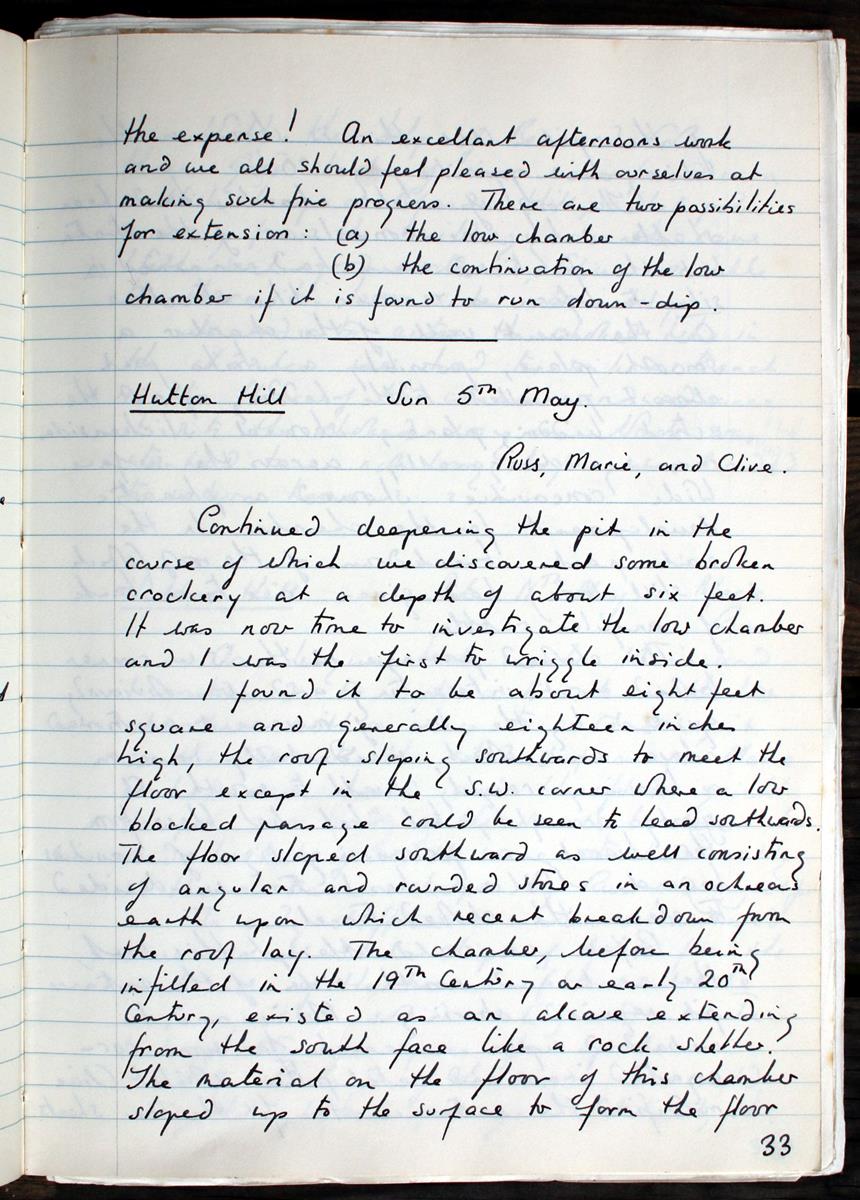 the expense! An excellant afternoons work
and we all should feel pleased with ourselves at
making such fine progress. There are two possibilities
for extension: (a) the low chamber
(b) the continuation of the low
chamber if it is found to run down-dip.
Hutton Hill Sun 5th May.
Russ, Marie, and Clive.
Continued deepening the pit in the
course of which we discovered some broken
crockery at a depth of about six feet.
It was now time to investigate the low chamber
and I was the first to wriggle inside.
I found it to be about eight feet
square and generally eighteen inches
high, the roof sloping southwards to meet the
floor except in the S.W. corner where a low
blocked passage could be seen to lead southwards.
The floor sloped southward as well consisting
of angular and rounded stones in an ochreous
earth upon which recent breakdown from
the roof lay. The chamber, before being
infilled in the 19th Century or early 20th
Century, existed as an alcove extending
from the south face like a rock shelter.
The material on the floor of this chamber
sloped up to the surface to form the floor
33